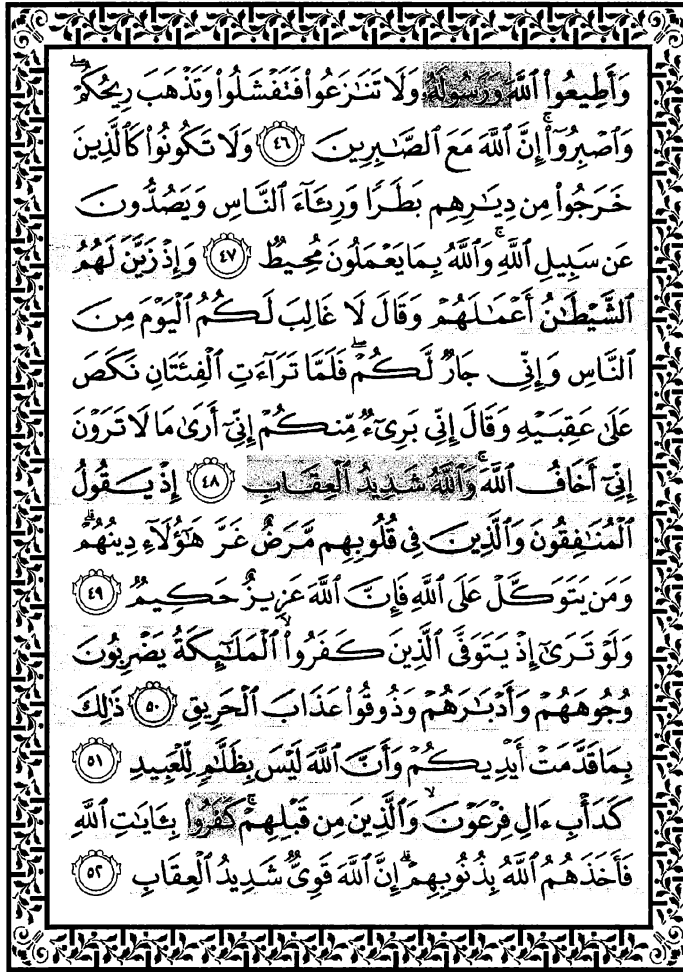 وَأَطِيعُوا۟ ٱللَّهَ وَرَسُولَهُۥ وَلَا تَنَٰزَعُوا۟ فَتَفْشَلُوا۟ وَتَذْهَبَ رِيحُكُمْ ۖ
وَٱصْبِرُوٓا۟ ۚ إِنَّ ٱللَّهَ مَعَ ٱلصَّٰبِرِينَ ٤٦ وَلَا تَكُونُوا۟ كَٱلَّذِينَ
خَرَجُوا۟ مِن دِيَٰرِهِم بَطَرًا وَرِئَآءَ ٱلنَّاسِ وَيَصُدُّونَ
عَن سَبِيلِ ٱللَّهِ ۚ وَٱللَّهُ بِمَا يَعْمَلُونَ مُحِيطٌ ٤٧ وَإِذْ زَيَّنَ لَهُمُ
ٱلشَّيْطَٰنُ أَعْمَٰلَهُمْ وَقَالَ لَا غَالِبَ لَكُمُ ٱلْيَوْمَ مِنَ
ٱلنَّاسِ وَإِنِّى جَارٌ لَّكُمْ ۖ فَلَمَّا تَرَآءَتِ ٱلْفِئَتَانِ نَكَصَ
عَلَىٰ عَقِبَيْهِ وَقَالَ إِنِّى بَرِىٓءٌ مِّنكُمْ إِنِّىٓ أَرَىٰ مَا لَا تَرَوْنَ
إِنِّىٓ أَخَافُ ٱللَّهَ ۚ وَٱللَّهُ شَدِيدُ ٱلْعِقَابِ ٤٨ إِذْ يَقُولُ
ٱلْمُنَٰفِقُونَ وَٱلَّذِينَ فِى قُلُوبِهِم مَّرَضٌ غَرَّ هَٰٓؤُلَآءِ دِينُهُمْ ۗ
وَمَن يَتَوَكَّلْ عَلَى ٱللَّهِ فَإِنَّ ٱللَّهَ عَزِيزٌ حَكِيمٌ ٤٩
وَلَوْ تَرَىٰٓ إِذْ يَتَوَفَّى ٱلَّذِينَ كَفَرُوا۟ ۙ ٱلْمَلَٰٓئِكَةُ يَضْرِبُونَ
وُجُوهَهُمْ وَأَدْبَٰرَهُمْ وَذُوقُوا۟ عَذَابَ ٱلْحَرِيقِ ٥٠ ذَٰلِكَ
بِمَا قَدَّمَتْ أَيْدِيكُمْ وَأَنَّ ٱللَّهَ لَيْسَ بِظَلَّٰمٍ لِّلْعَبِيدِ ٥١
كَدَأْبِ ءَالِ فِرْعَوْنَ ۙ وَٱلَّذِينَ مِن قَبْلِهِمْ ۚ كَفَرُوا۟ بِـَٔايَٰتِ ٱللَّهِ
فَأَخَذَهُمُ ٱللَّهُ بِذُنُوبِهِمْ ۗ إِنَّ ٱللَّهَ قَوِىٌّ شَدِيدُ ٱلْعِقَابِ ٥٢